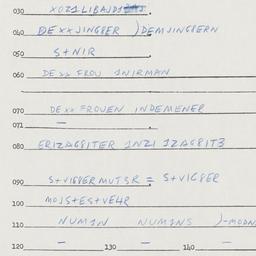 030 XOZ1LIBAJD1
040 DExxJINGBER )DEMJINGBERN
050 S+NIR
060 DE xx FROU 1NIRMAN
070 DE xx FROUEN INDEMENER
071 —
080 ERIZAGBITER 1NZI 1ZAGBITZ
090 S+VIGBERMUTSR = S+VIGBER
100 MOJS+ES+VEHR
110 NUMIN NUMINS )-MODN
120 — 130 — 140 —